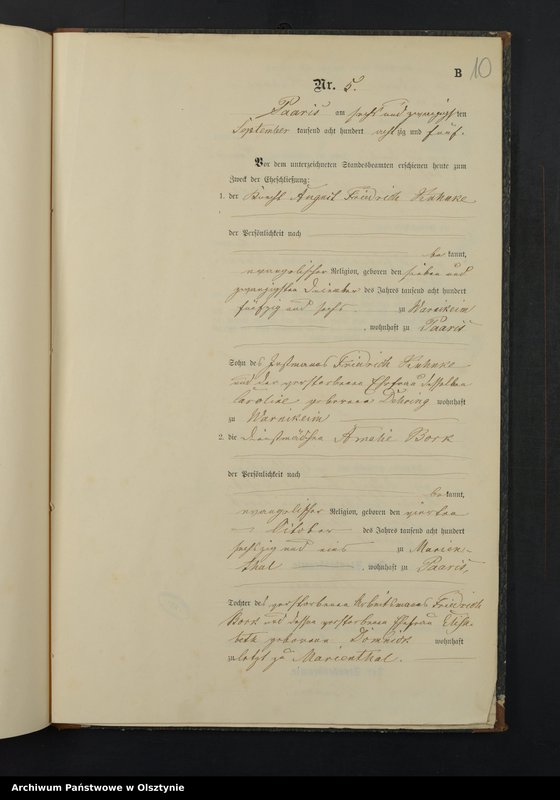 B 10
Nr. 5.
Paaris am sechs und zwanzigsten
September tausend acht hundert achtzig und fünf.
Vor dem unterzeichneten Standesbeamten erschienen heute zum
Zweck der Eheschließung:
1. der Knecht August Friedrich Kuhnke
der Persönlichkeit nach
bekannt,
evangelischer Religion, geboren den sieben und
zwanzigsten Dezember des Jahres tausend acht hundert
fünfzig und sechs zu Warnikeim
, wohnhaft zu Paaris
Sohn des Instmanns Friedrich Kuhnke
und der verstorbenen Ehefrau desselben
Caroline geborenen Döhring wohnhaft
zu Warnikeim
2. die Dienstmädchen Amalie Bork
der Persönlichkeit nach
bekannt,
evangelischer Religion, geboren den vierten
October des Jahres tausend acht hundert
sechszig und eins zu Marien-
thal , wohnhaft zu Paaris,
Tochter des verstorbenen Arbeitsmanns Friedrich
Bork und dessen verstorbenen Ehefrau Elisa-
beth geborenen Domnick wohnhaft
zuletzt zu Marienthal.
Archiwum Państwowe w Olsztynie